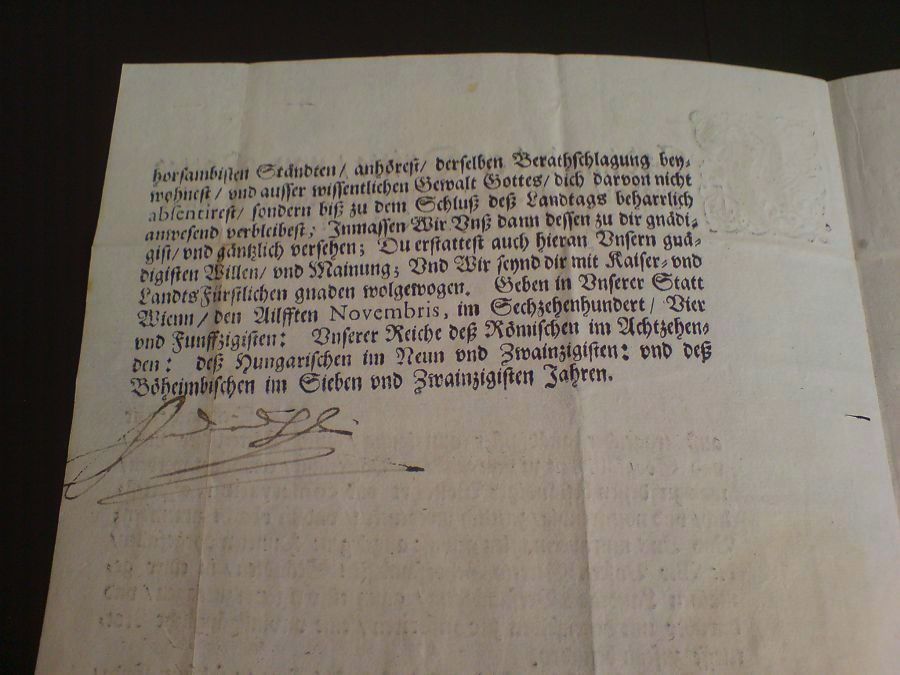 horsambisten Ständten/ anhörest/ derselben Berathschlagung bey-
wohnest/ vnd ausser wissentlichen Gewalt Gottes/ dich darvon nicht
absentirest/ sondern biß zu dem Schluß deß Landtags beharrlich
anwesend verbleibest; Inmassen Wir Vnß dann dessen zu dir gnädi-
gist/ vnd gäntzlich versehen; Du erstattest auch hieran Vnsern gnä-
digisten Willen/ vnd Mainung; Vnd Wir seynd dir mit Kaiser- vnd
LandtsFürstlichen gnaden wolgewogen. Geben in Vnserer Statt
Wienn/ den Ailfften Novembris, im Sechzehenhundert/ Vier
vnd Funffzigisten: Vnserer Reiche deß Römischen im Achtzehen-
den: deß Hungarischen im Neun vnd Zwainzigisten: vnd deß
Böheimbischen im Sieben vnd Zwainzigisten Jahren.